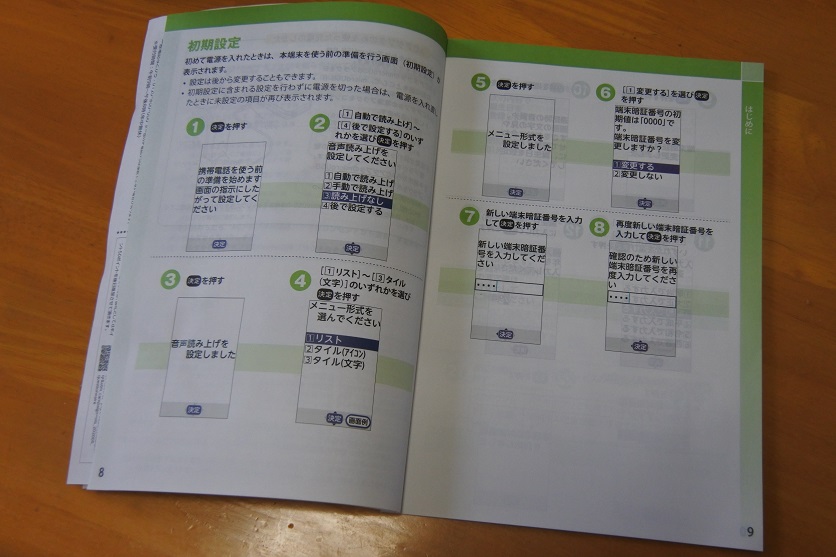 初期設定
初めて電源を入れたときは、本端末を使う前の準備を行う画面（初期設定）が
表示されます。
• 設定は後から変更することもできます。
• 初期設定に含まれる設定を行わずに電源を切った場合は、電源を入れ直し
たときに未設定の項目が再び表示されます。
1 決定を押す
携帯電話を使う前
の準備を始めます
画面の指示にした
がって設定してく
ださい
決定
2 [[1]自動で読み上げ]～
[[4]後で設定する]のいず
れかを選び決定を押す
音声読み上げを
設定してください
1自動で読み上げ
2手動で読み上げ
3読み上げなし
4後で設定する
決定
3 決定を押す
音声読み上げを
設定しました
決定
4 [[1]リスト]～[[3]タイル
(文字)]のいずれかを選び
決定を押す
メニュー形式を
選んでください
1リスト
2タイル(アイコン)
3タイル(文字)
決定 画面例
8
はじめに
5 決定を押す
メニュー形式を
設定しました
決定
6 [[1]変更する]を選び決定
を押す
端末暗証番号の初
期値は｢0000｣で
す。
端末暗証番号を変
更しますか？
1変更する
2変更しない
決定
7 新しい端末暗証番号を入力
して決定を押す
新しい端末暗証番
号を入力してくだ
さい
••••
決定
8 再度新しい端末暗証番号を
入力して決定を押す
確認のため新しい
端末暗証番号を再
度入力してくださ
い
••••
決定
9